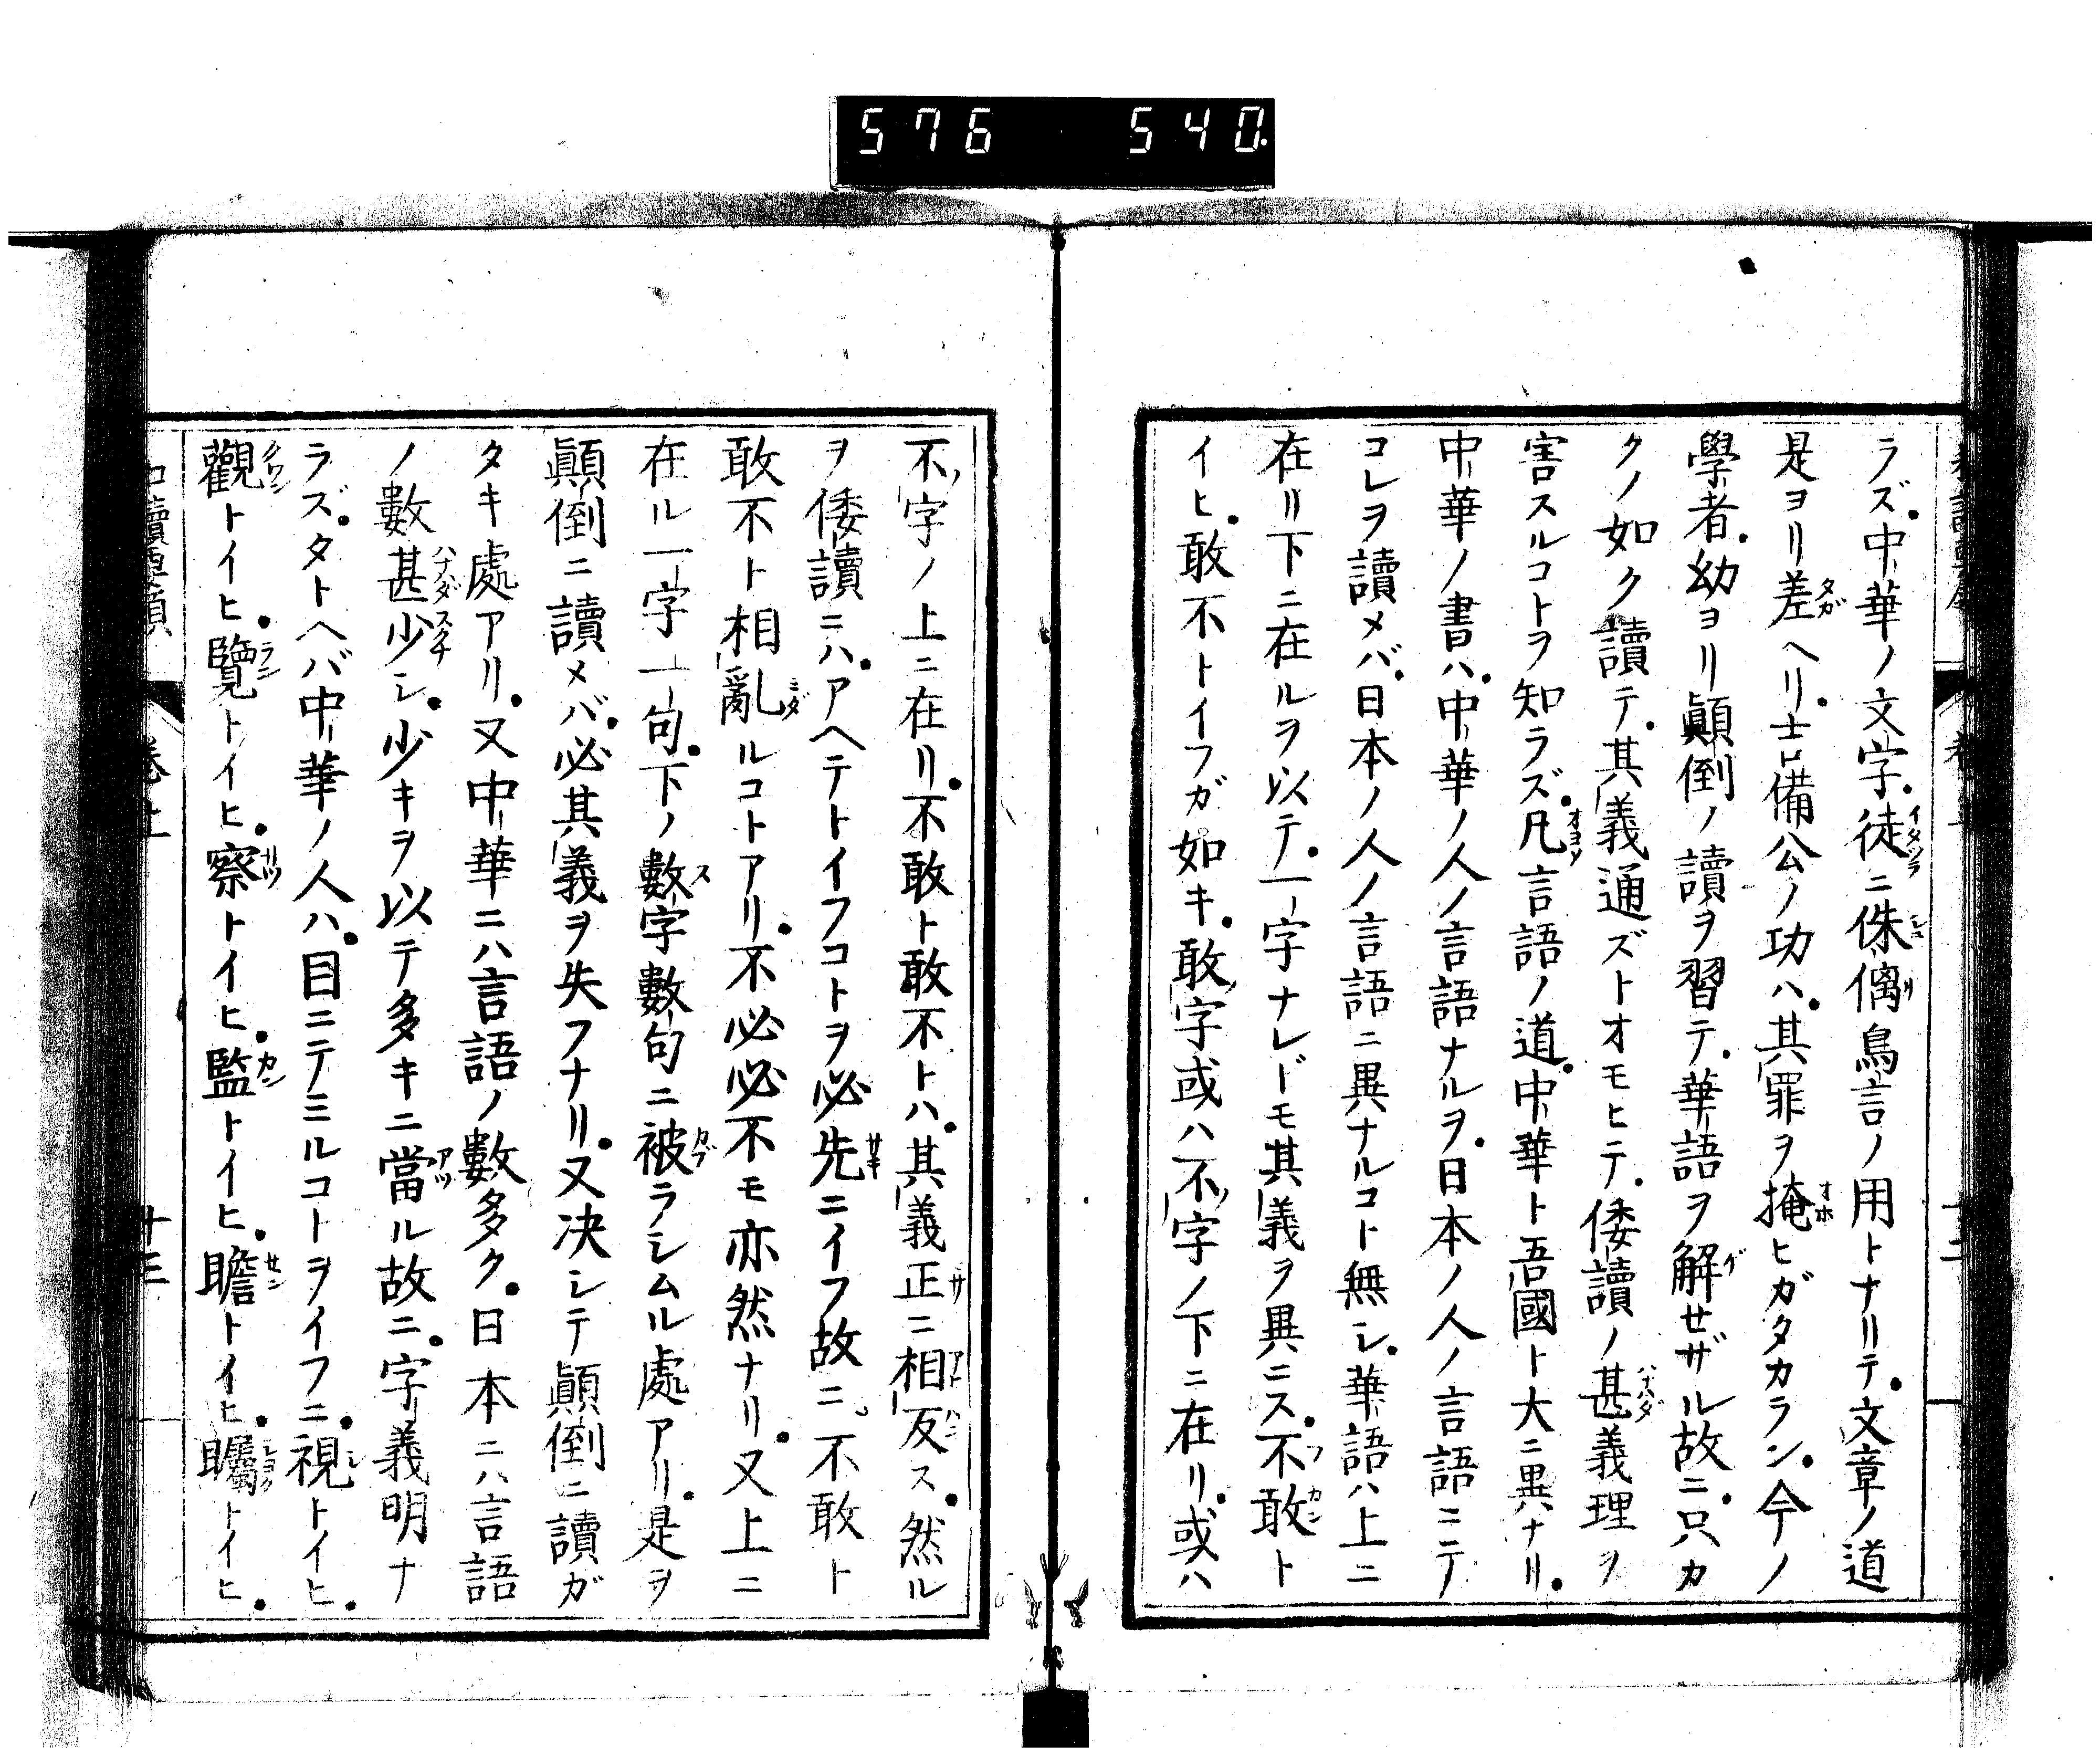 576 540
ラズ中華ノ文字徒ニ侏儷鳥言ノ用トナリテ文章ノ道
是ヨリ差ヘリ吉備公ノ功ハ其罪ヲ掩ヒガタカラン今ノ
學者幼ヨリ顚倒ノ讀ヲ習テ華語ヲ解セザル故ニ只カ
クノ如ク讀テ其義通ズトオモヒテ倭讀ノ甚義理ヲ
害スルコトヲ知ラズ凡言語ノ道中華ト吾國ト大ニ異ナリ
中華ノ書ハ中華ノ人ノ言語ナルヲ日本ノ人ノ言語ニテ
コレヲ讀メバ日本ノ人ノ言語ニ異ナルコト無シ華語ハ上ニ
在リ下ニ在ルヲ以テ一字ナレドモ其義ヲ異ニス不敢ト
イヒ敢不トイフガ如キ敢字或ハ不字ノ下ニ在リ或ハ
不字ノ上ニ在リ不敢ト敢不トハ其義正ニ相反ス然ル
ヲ倭讀ニハアヘテトイフコトヲ必先ニイフ故ニ不敢ト
敢不ト相亂ルコトアリ不必必不モ亦然ナリ又上ニ
在ル一字一句下ノ數字數句ニ被ラシムル處アリ是ヲ
顚倒ニ讀メバ必其義ヲ失フナリ又决シテ顚倒ニ讀ガ
タキ處アリ又中華ニハ言語ノ數多ク日本ニハ言語
ノ數甚少シ少キヲ以テ多キニ當ル故ニ字義明ナ
ラズタトヘバ中華ノ人ハ目ニテミルコトヲイフニ視トイヒ
觀トイヒ覽トイヒ察トイヒ監トイヒ瞻トイヒ矚トイヒ
卷上
十三